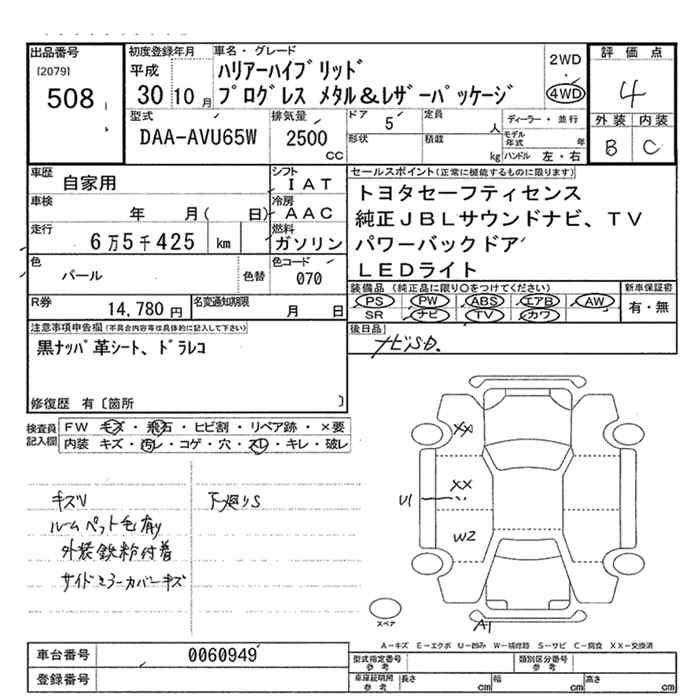 出品番号
[2079]
508
初度登録年月
平成
30 10 月
車名・グレード
ハリアーハイブリッド
プログレス メタル&レザーパッケージ
2WD
・
4WD
評価点
4
外装 内装
B C
型式
DAA-AVU65W
排気量
2500
CC
ドア
5
形状
定員
人
積載
kg
ディーラー・並行
モデル年式 年
ハンドル 左・右
車歴
自家用
シフト
IAT
車検
年 月( 日)
冷房
AAC
走行
6万5千425 km
燃料
ガソリン
色
パール
色替
色コード
070
R券
14,780円
名変通知期限
月 日
セールスポイント(正常に機能するものに限ります)
トヨタセーフティセンス
純正JBLサウンドナビ、TV
パワーバックドア
LEDライト
装備品 (純正品に限り○をつけてください)
PS PW ABS エアB AW
SR ナビ TV カワ
新車保証書
有・無
後日品
ナビSD.
注意事項申告欄(不具合内容等は具体的に記入して下さい)
黒ナッパ革シート、ドラレコ
修復歴 有〔箇所 〕
検査員記入欄
FW キズ・飛石・ヒビ割・リペア跡・×要
内装 キズ・汚レ・コゲ・穴・スレ・キレ・破レ
キズV
ルームペット毛有り
外装鉄粉付着
サイドミラーカバーキズ
下廻りS
XX
XX
U1
W2
A1
スペア
A-キズ E-エクボ U-凹み W-補修跡 S-サビ C-腐食 XX-交換済
車台番号
0060949
登録番号
型式指定番号 参考
類別区分番号 参考
車庫証明用 参考
長さ cm
幅 cm
高さ cm